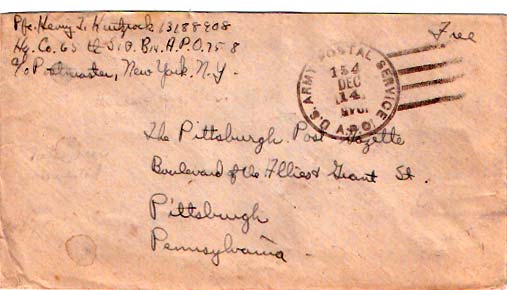 Pfc. Henry I. 13188908
Hq. Co. 65 th Bn. A.P.O. 758
c/o Postmaster, New York. N.Y.
Free
U.S. ARMY POSTAL SERVICE
A.P.O.
154
DEC
14
The Pittsburgh Post Gazette
Boulevard of the Allies & Grant St.
Pittsburgh
Pennsylvania